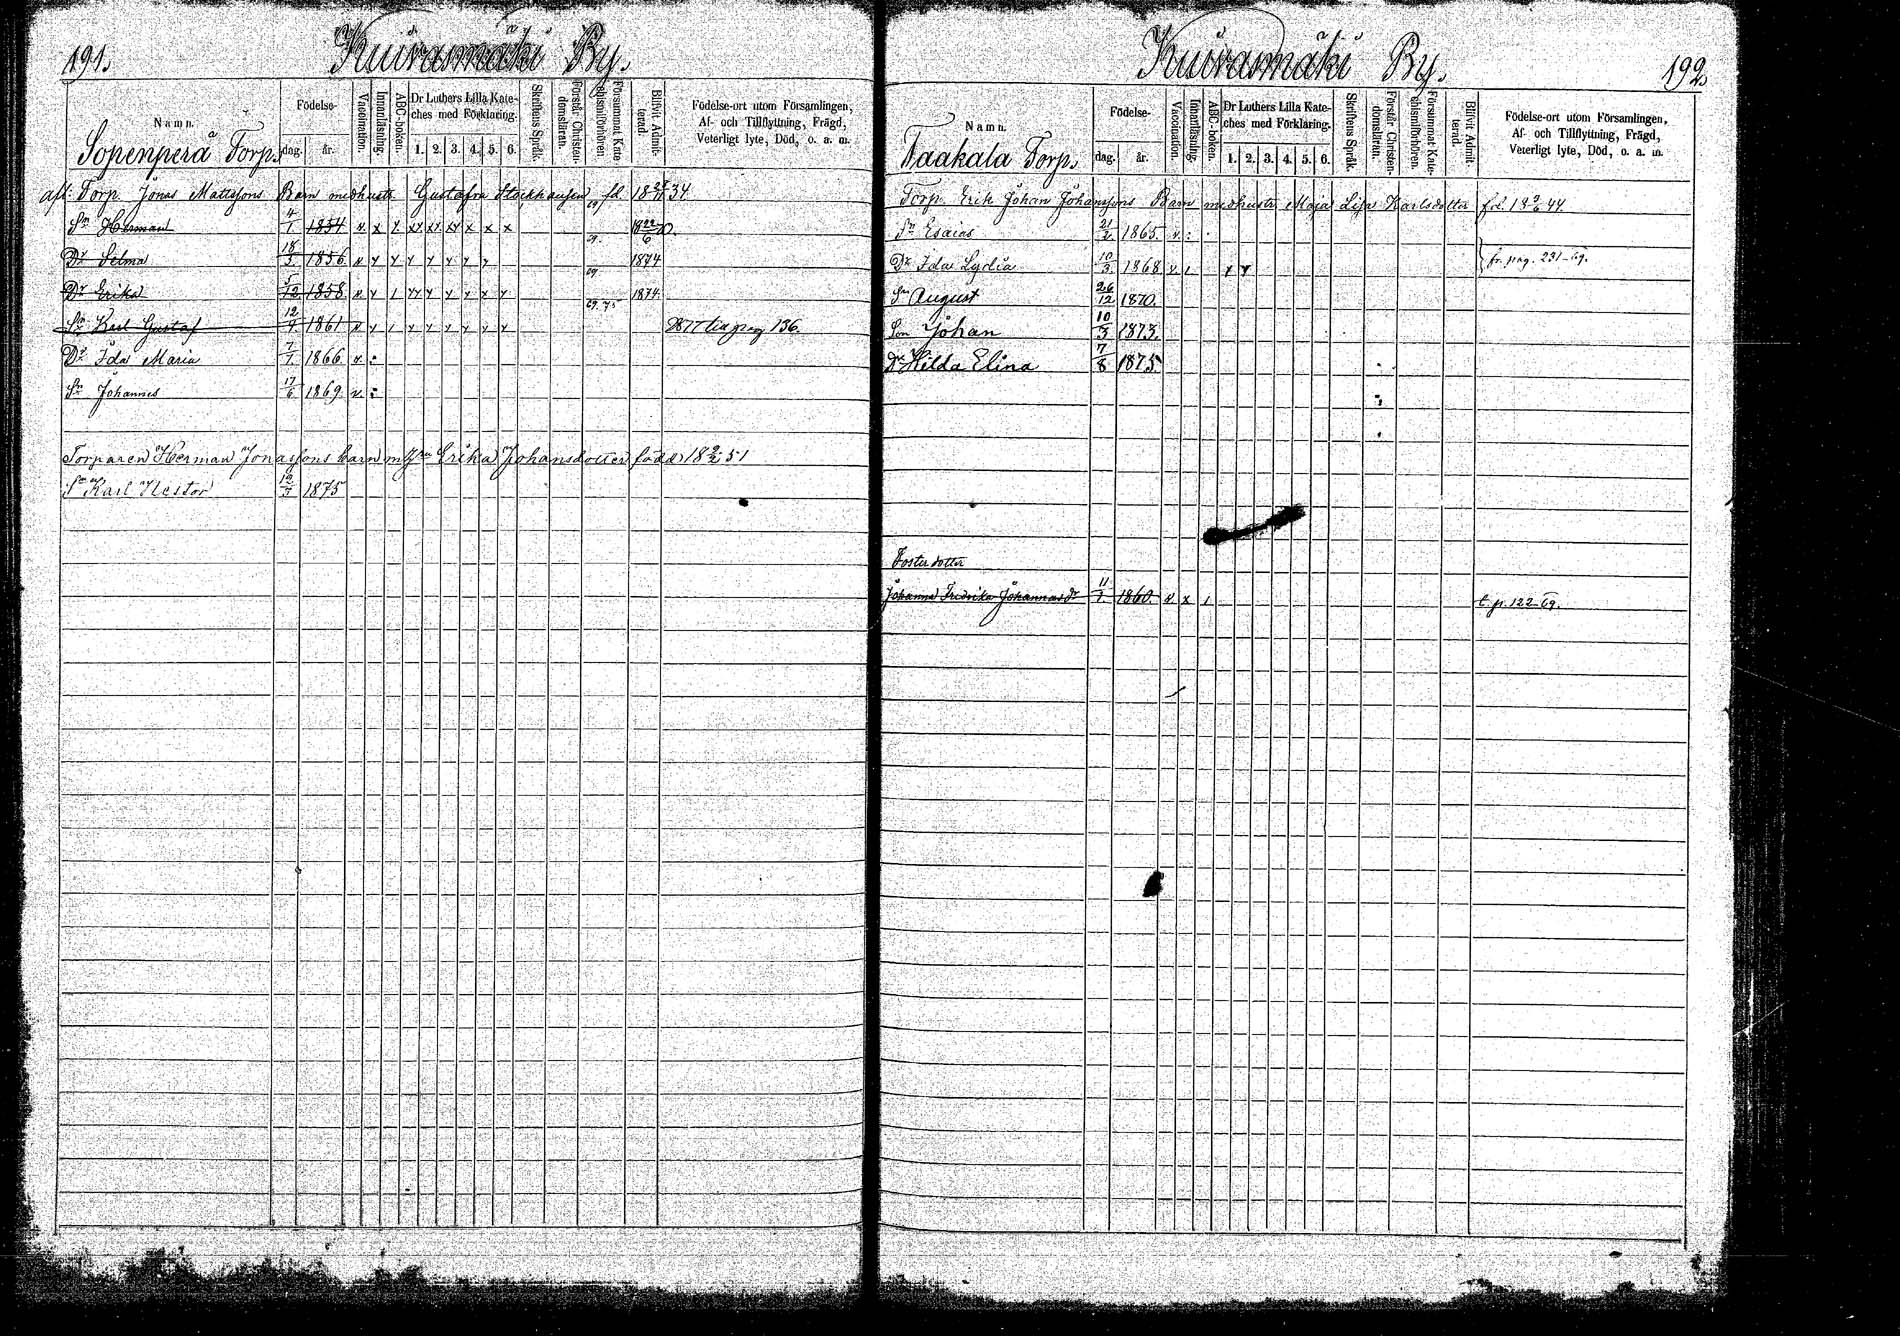 191.
Kuivasmäki By.
Namn.
Sopenperä Torp.
Födelse-
dag. år.
Vaccination.
Innanläsning.
ABC-boken.
Dr Luthers Lilla Kate-
ches med Förklaring.
1. 2. 3. 4. 5. 6.
Skriftens Språk.
Förstår Christen-
domsläran.
Försummat Kate-
chismiförhören.
Blifvit Admit-
terad.
Födelse-ort utom Församlingen,
Af- och Tillflyttning, Frägd,
Veterligt lyte, Död, o. a. m.
Torp. Jonas Mattssons Barn med hustr. Gustafva fd. 34
Sn Herman 4/1 1854 v x
Dr Selma 18/3 1856 v 1874
Dr Erika 5/12 1858 v 1874
Sn Karl Gustaf 12/4 1861 v 1877 till pag 136.
Dr Ida Maria 7/1 1866 v :
Sn Johannes 17/6 1869 v :
Torparen Herman Jonassons barn m Erika Johansdotter född 18 2/2 51
Sn Karl Nestor 12/3 1875
Kuivasmäki By.
192.
Namn.
Taakala Torp.
Födelse-
dag. år.
Vaccination.
Innanläsning.
ABC-boken.
Dr Luthers Lilla Kate-
ches med Förklaring.
1. 2. 3. 4. 5. 6.
Skriftens Språk.
Förstår Christen-
domsläran.
Försummat Kate-
chismiförhören.
Blifvit Admit-
terad.
Födelse-ort utom Församlingen,
Af- och Tillflyttning, Frägd,
Veterligt lyte, Död, o. a. m.
Torp. Erik Johan Johanssons Barn med hustr. Maja Lisa Karlsdotter fd. 44.
Sn Esaias 21/2 1865. v :
Dr Ida Lydia 10/3 1868 v fr. pag. 231-69.
Sn August 26/12 1870.
Son Johan 10/3 1873.
Dr Hilda Elina 7/8 1875
Fosterdotter
Johanna Fredrika Johannasdr 11/1 1860. v x t. p. 122-69.